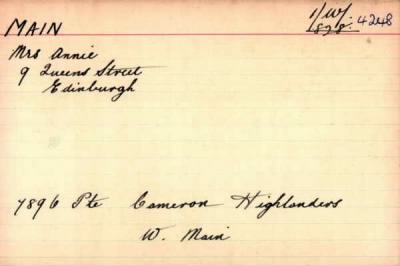 MAIN
1/W/
878. 4248
Mrs Annie
9 Queens Street
Edinburgh
7896 Pte Cameron Highlanders
W. Main